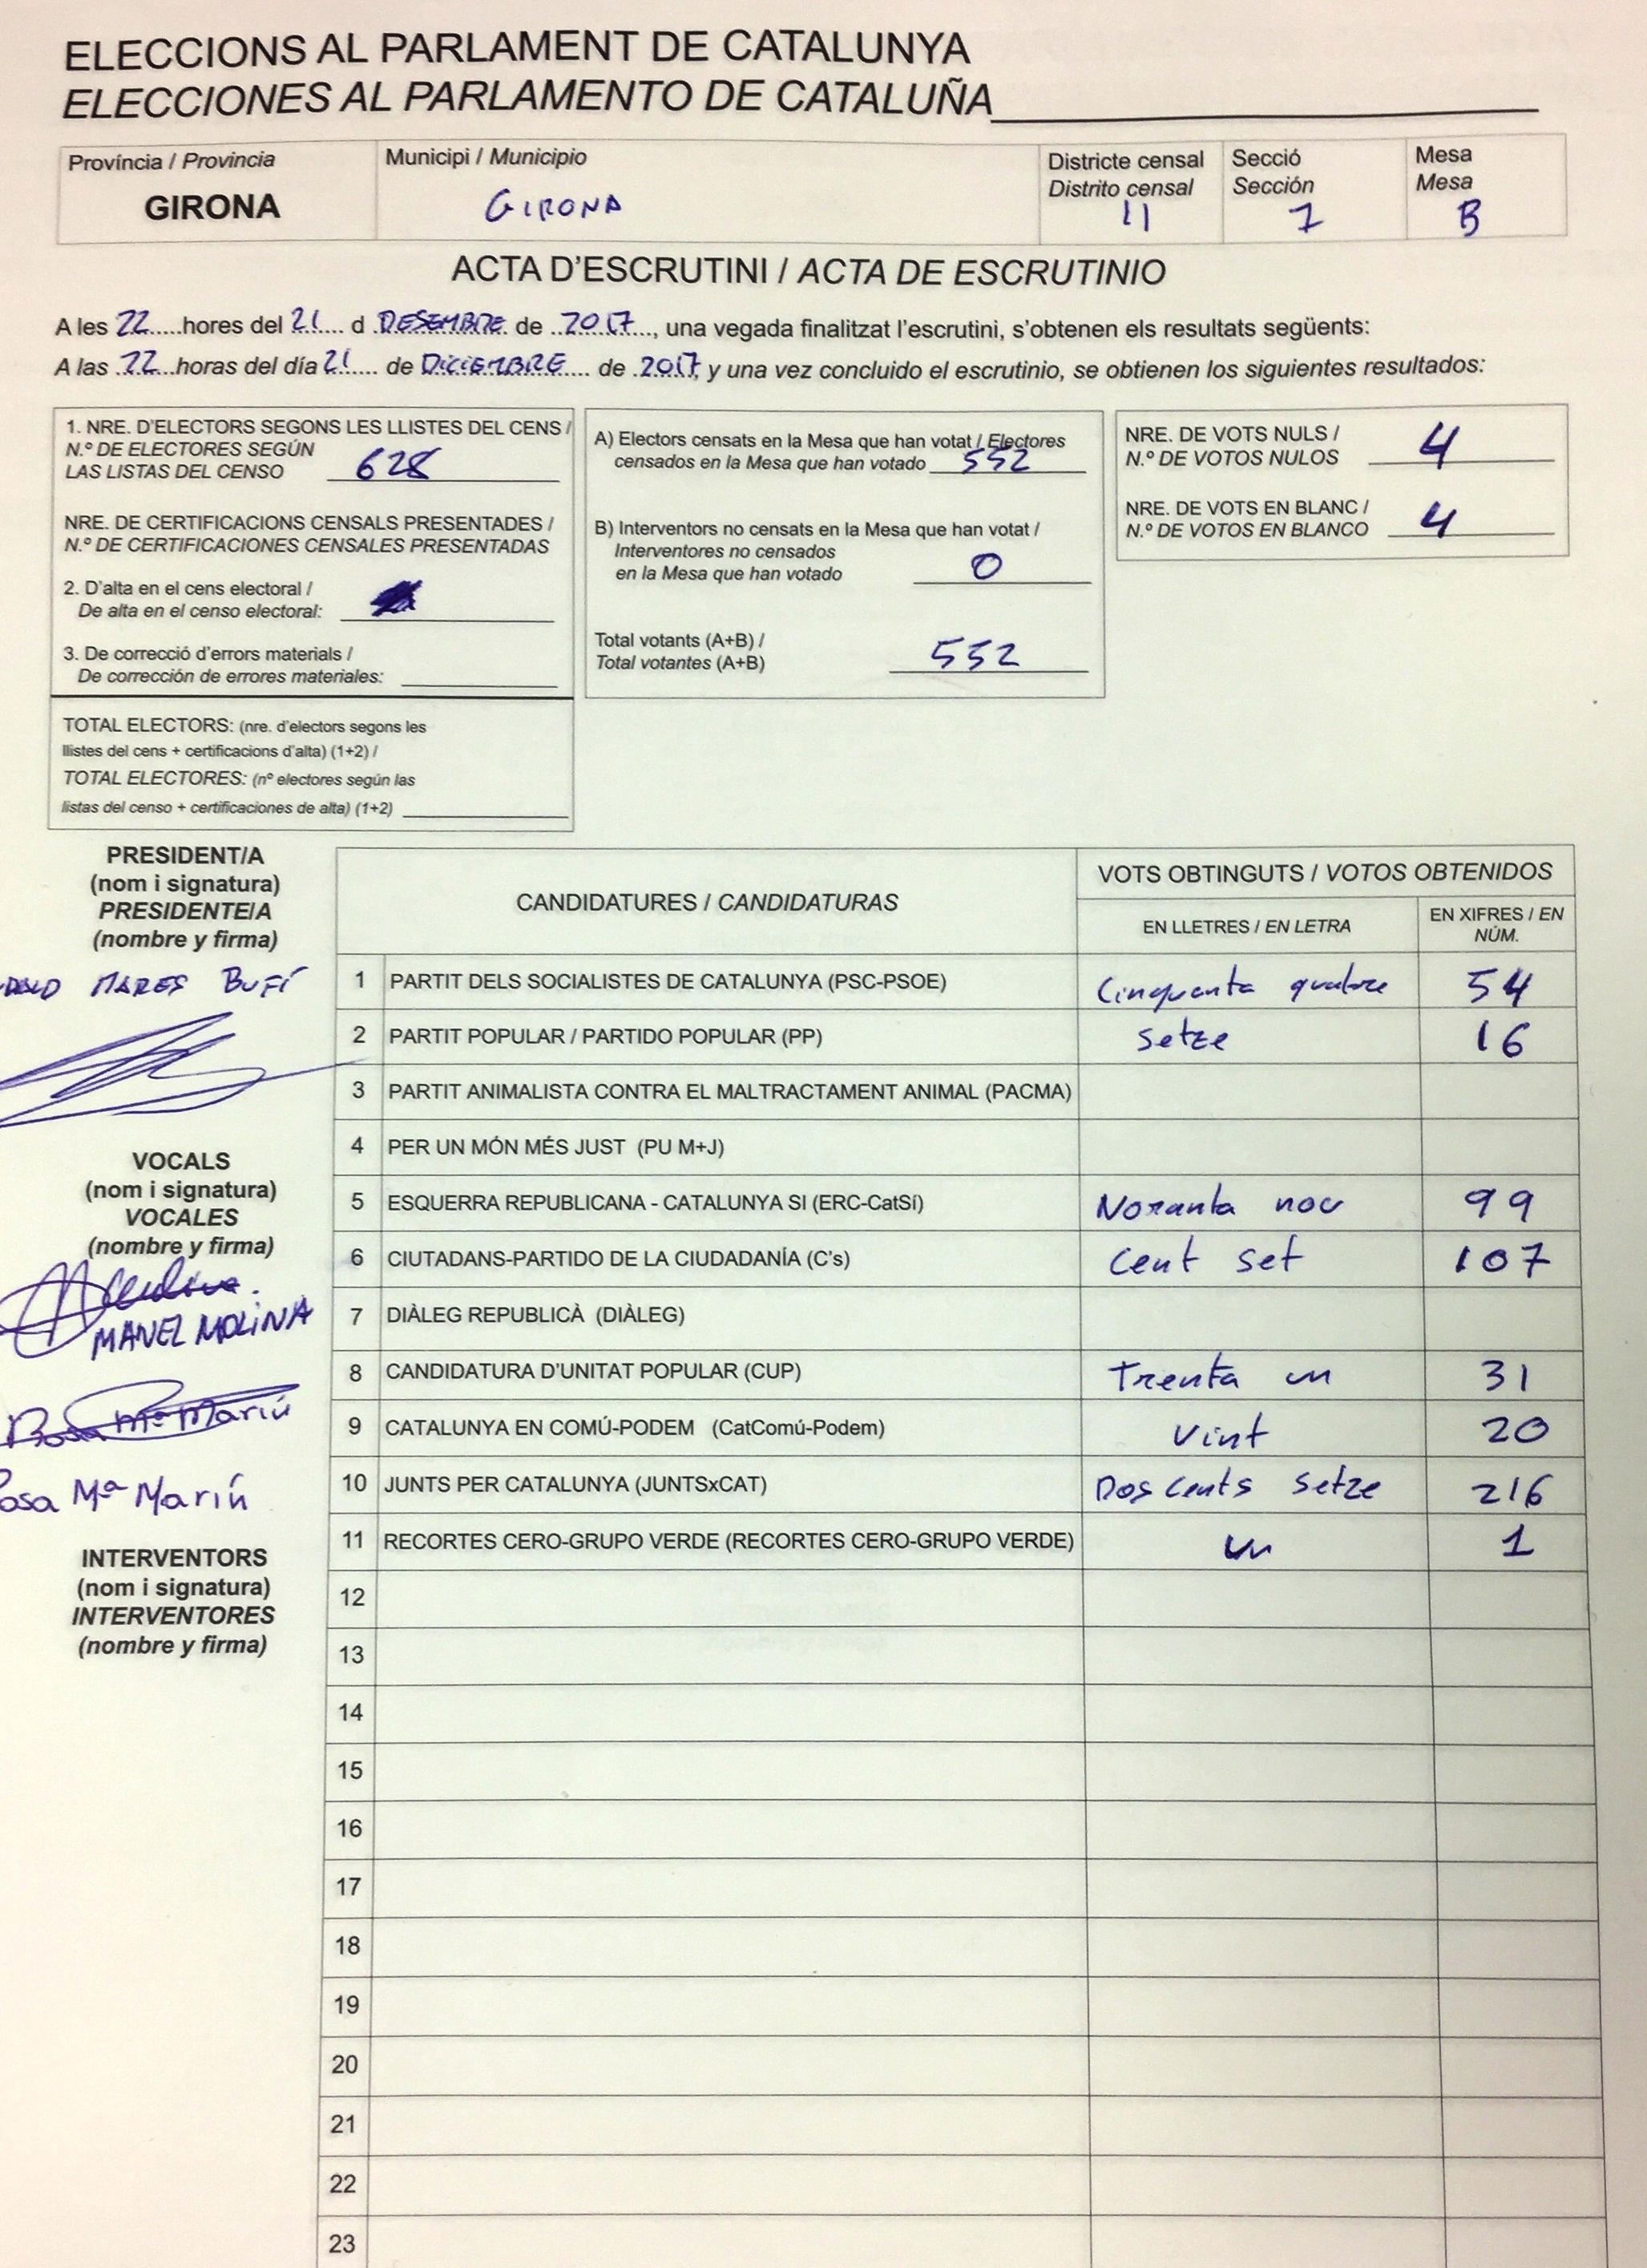 ELECCIONS AL PARLAMENT DE CATALUNYA
ELECCIONES AL PARLAMENTO DE CATALUÑA
Província / Provincia
GIRONA
Municipi / Municipio
GIRONA
Districte censal
Distrito censal
11
Secció
Sección
1
Mesa
Mesa
B
ACTA D'ESCRUTINI / ACTA DE ESCRUTINIO
A les 22 hores del 21 d DESEMBRE de 2017, una vegada finalitzat l'escrutini, s'obtenen els resultats següents:
A las 22 horas del día 21 de DICIEMBRE de 2017, y una vez concluido el escrutinio, se obtienen los siguientes resultados:
1. NRE. D'ELECTORS SEGONS LES LLISTES DEL CENS /
N.º DE ELECTORES SEGÚN
LAS LISTAS DEL CENSO 628
NRE. DE CERTIFICACIONS CENSALS PRESENTADES /
N.º DE CERTIFICACIONES CENSALES PRESENTADAS
2. D'alta en el cens electoral /
De alta en el censo electoral:
3. De correcció d'errors materials /
De corrección de errores materiales:
TOTAL ELECTORS: (nre. d'electors segons les
llistes del cens + certificacions d'alta) (1+2) /
TOTAL ELECTORES: (nº electores según las
listas del censo + certificaciones de alta) (1+2)
A) Electors censats en la Mesa que han votat / Electores
censados en la Mesa que han votado 552
B) Interventors no censats en la Mesa que han votat /
Interventores no censados
en la Mesa que han votado 0
Total votants (A+B) /
Total votantes (A+B) 552
NRE. DE VOTS NULS /
N.º DE VOTOS NULOS 4
NRE. DE VOTS EN BLANC /
N.º DE VOTOS EN BLANCO 4
PRESIDENT/A
(nom i signatura)
PRESIDENTE/A
(nombre y firma)
MARES BUFÍ
VOCALS
(nom i signatura)
VOCALES
(nombre y firma)
MANEL MOLINA
Rosa Mª Marín
Rosa Mª Marín
INTERVENTORS
(nom i signatura)
INTERVENTORES
(nombre y firma)
CANDIDATURES / CANDIDATURAS
VOTS OBTINGUTS / VOTOS OBTENIDOS
EN LLETRES / EN LETRA
EN XIFRES / EN NÚM.
1 PARTIT DELS SOCIALISTES DE CATALUNYA (PSC-PSOE) Cinquanta quatre 54
2 PARTIT POPULAR / PARTIDO POPULAR (PP) Setze 16
3 PARTIT ANIMALISTA CONTRA EL MALTRACTAMENT ANIMAL (PACMA)
4 PER UN MÓN MÉS JUST (PU M+J)
5 ESQUERRA REPUBLICANA - CATALUNYA SI (ERC-CatSí) Noranta nou 99
6 CIUTADANS-PARTIDO DE LA CIUDADANÍA (C's) Cent set 107
7 DIÀLEG REPUBLICÀ (DIÀLEG)
8 CANDIDATURA D'UNITAT POPULAR (CUP) Trenta un 31
9 CATALUNYA EN COMÚ-PODEM (CatComú-Podem) Vint 20
10 JUNTS PER CATALUNYA (JUNTSxCAT) Dos cents setze 216
11 RECORTES CERO-GRUPO VERDE (RECORTES CERO-GRUPO VERDE) un 1
12
13
14
15
16
17
18
19
20
21
22
23